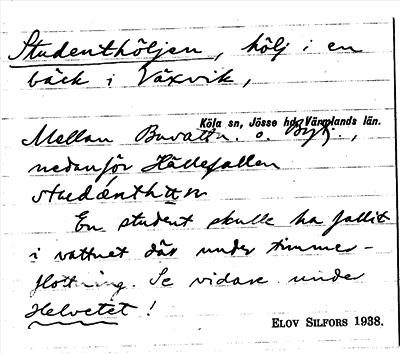 Studenthöljen, hölj i en
bäck i Växvik,
Köla sn, Jösse hd, Värmlands län.
Mellan Bovattn. o. Byk.,
nedanför Hällefallen
studænthɯn
En student skulle ha fallit
i vattnet där under timmer-
flottning. Se vidare under
Helvetet!
ELOV SILFORS 1938.